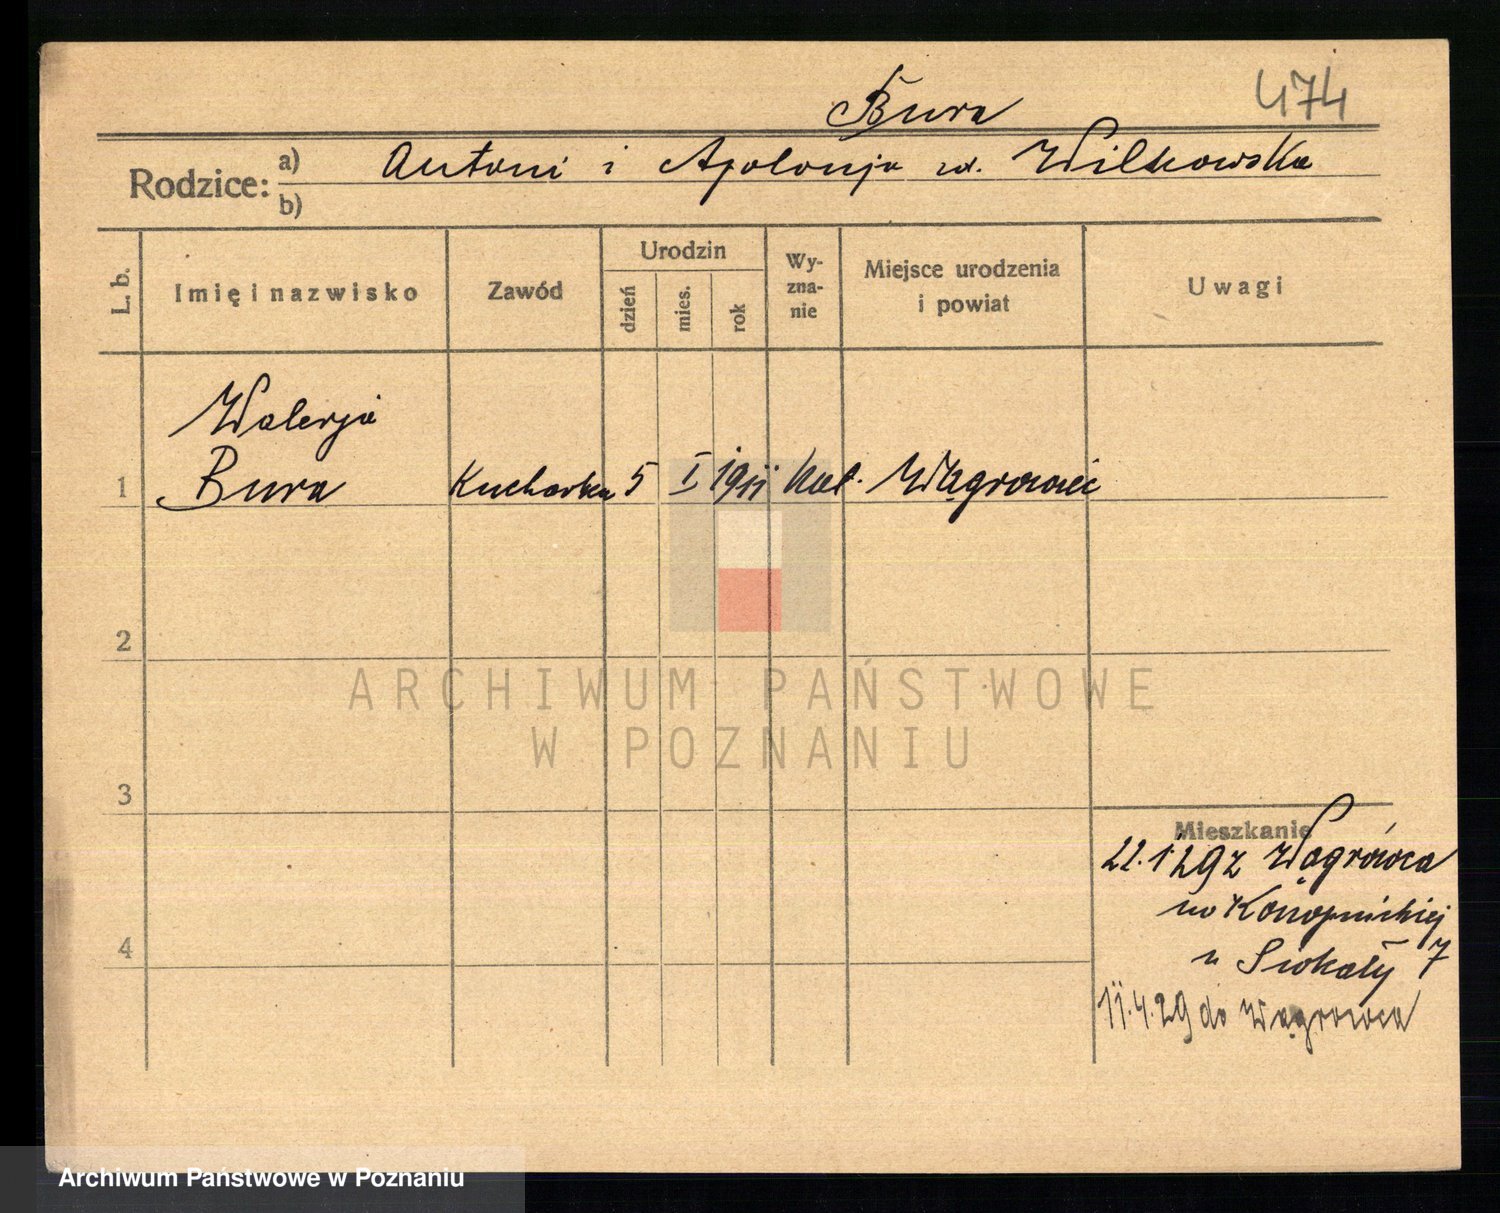 Bura
474
Rodzice: a) Antoni i Apolonja w. Wilkowska
b)
L. b.
Imię i nazwisko
Zawód
Urodzin
dzień
mies.
rok
Wy-
zna-
nie
Miejsce urodzenia
i powiat
Uwagi
Walerja
1 Bura Kucharka 5 I 1911 kat. Wągrowiec
2
ARCHIWUM PAŃSTWOWE
W POZNANIU
3
Mieszkanie
22.1 29 z Wągrówca
na Konopnickiej
u Siokały 7
4
11.4.29 do Wągrowca
Archiwum Państwowe w Poznaniu